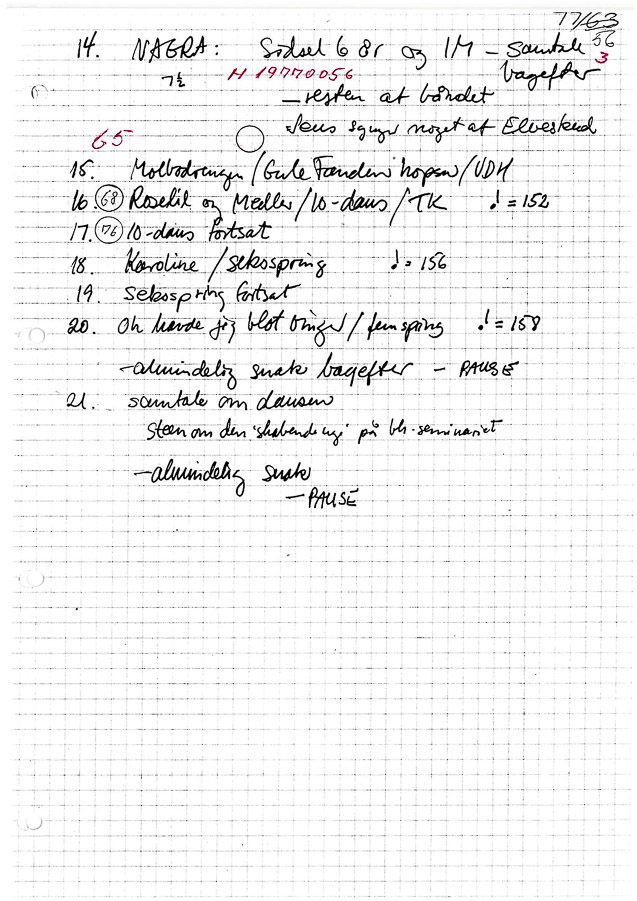 77/63
56
3
14. NAGRA: Sidsel 6 8r og 1M – samtale
7½ H 19770056 bagefter
– resten af båndet
Jens synger noget af Elveskud
65
15. Molbodrengen / Gule Fanden i hopsa / VDH
16. 68 Roselil og Medler / 10-dans / TK ! = 152
17. 76 10-dans fortsat
18. Karoline / seksspring ! = 156
19. seksspring fortsat
20. Oh havde jeg blot vinger / femspring ! = 158
– almindelig snak bagefter – PAUSE
21. samtale om dansen
Steen om den 'skabende' på bh-seminariet
– almindelig snak
– PAUSE